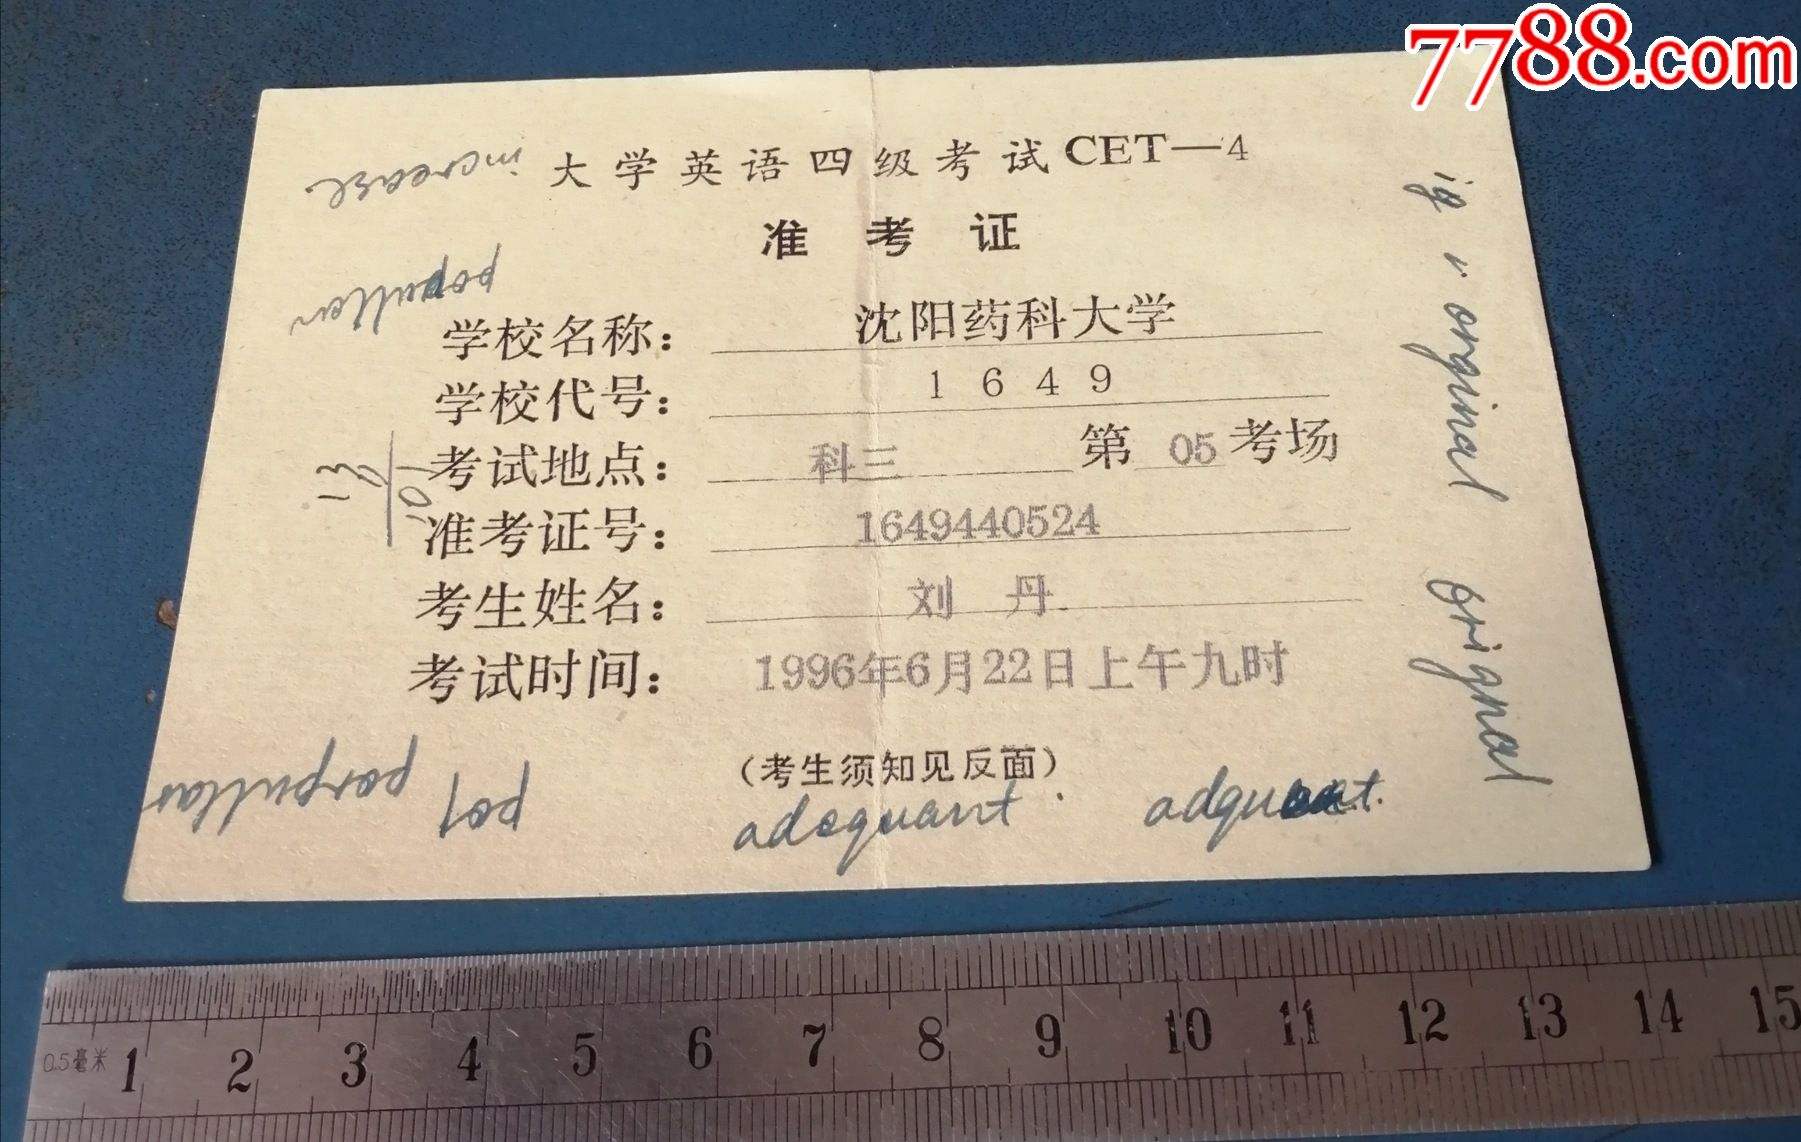 7788.com
大学英语四级考试CET—4
准考证
学校名称： 沈阳药科大学
学校代号： 1649
考试地点： 科三 第 05 考场
准考证号： 1649440524
考生姓名： 刘 丹
考试时间： 1996年6月22日上午九时
（考生须知见反面）
increase
populler
porpullar
pol
adequant
orginal
orignal
0.5毫米 1 2 3 4 5 6 7 8 9 10 11 12 13 14 15